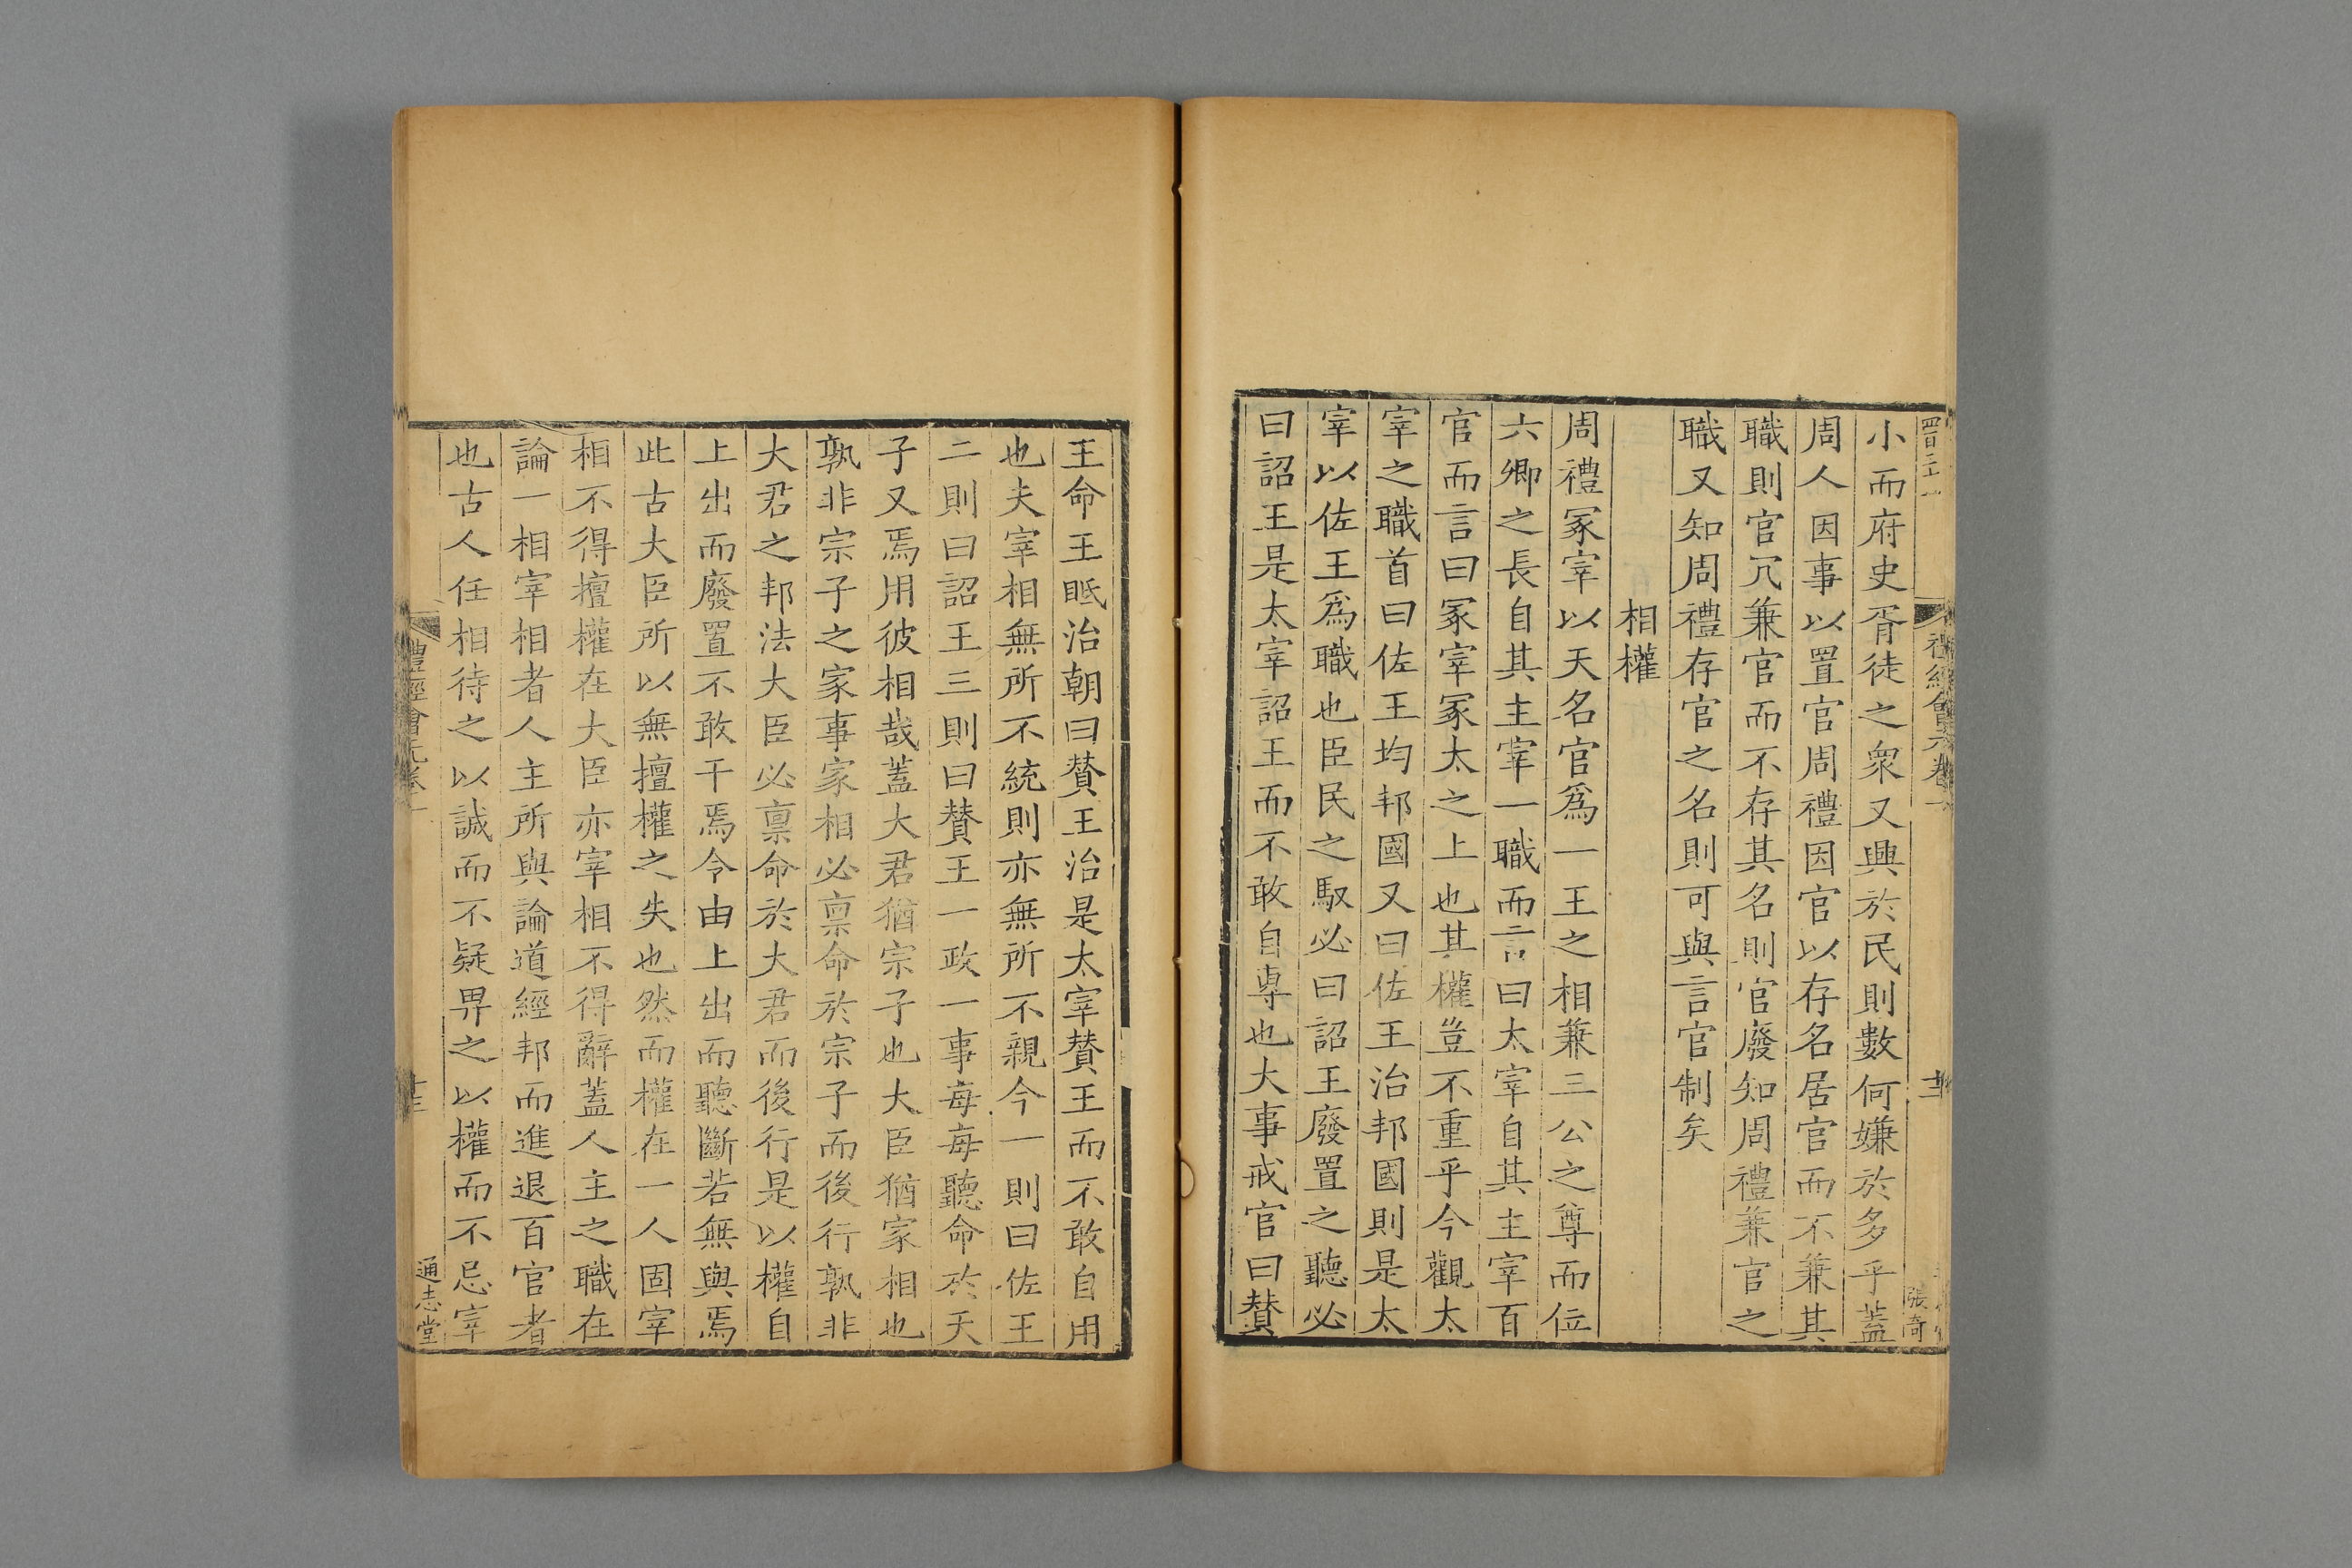 小而府史胥徒之衆又興於民則數何嫌於多乎蓋
周人因事以置官周禮因官以存名居官而不兼其
職則官冗兼官而不存其名則官廢知周禮兼官之
職又知周禮存官之名則可與言官制矣
相權
周禮冢宰以天名官爲一王之相兼三公之尊而位
六卿之長自其主宰一職而言曰太宰自其主宰百
官而言曰冢宰冢太之上也其權豈不重乎今觀太
宰之職首曰佐王均邦國又曰佐王治邦國則是太
宰以佐王爲職也臣民之馭必曰詔王廢置之聽必
曰詔王是太宰詔王而不敢自專也大事戒官曰賛
王命王眡治朝曰賛王治是太宰賛王而不敢自用
也夫宰相無所不統則亦無所不親今一則曰佐王
二則曰詔王三則曰賛王一政一事每每聽命於天
子又焉用彼相哉蓋大君猶宗子也大臣猶家相也
孰非宗子之家事家相必禀命於宗子而後行孰非
大君之邦法大臣必禀命於大君而後行是以權自
上出而廢置不敢干焉令由上出而聽斷若無與焉
此古大臣所以無擅權之失也然而權在一人固宰
相不得擅權在大臣亦宰相不得辭蓋人主之職在
論一相宰相者人主所與論道經邦而進退百官者
也古人任相待之以誠而不疑畀之以權而不忌宰
禮經會元卷一
通志堂